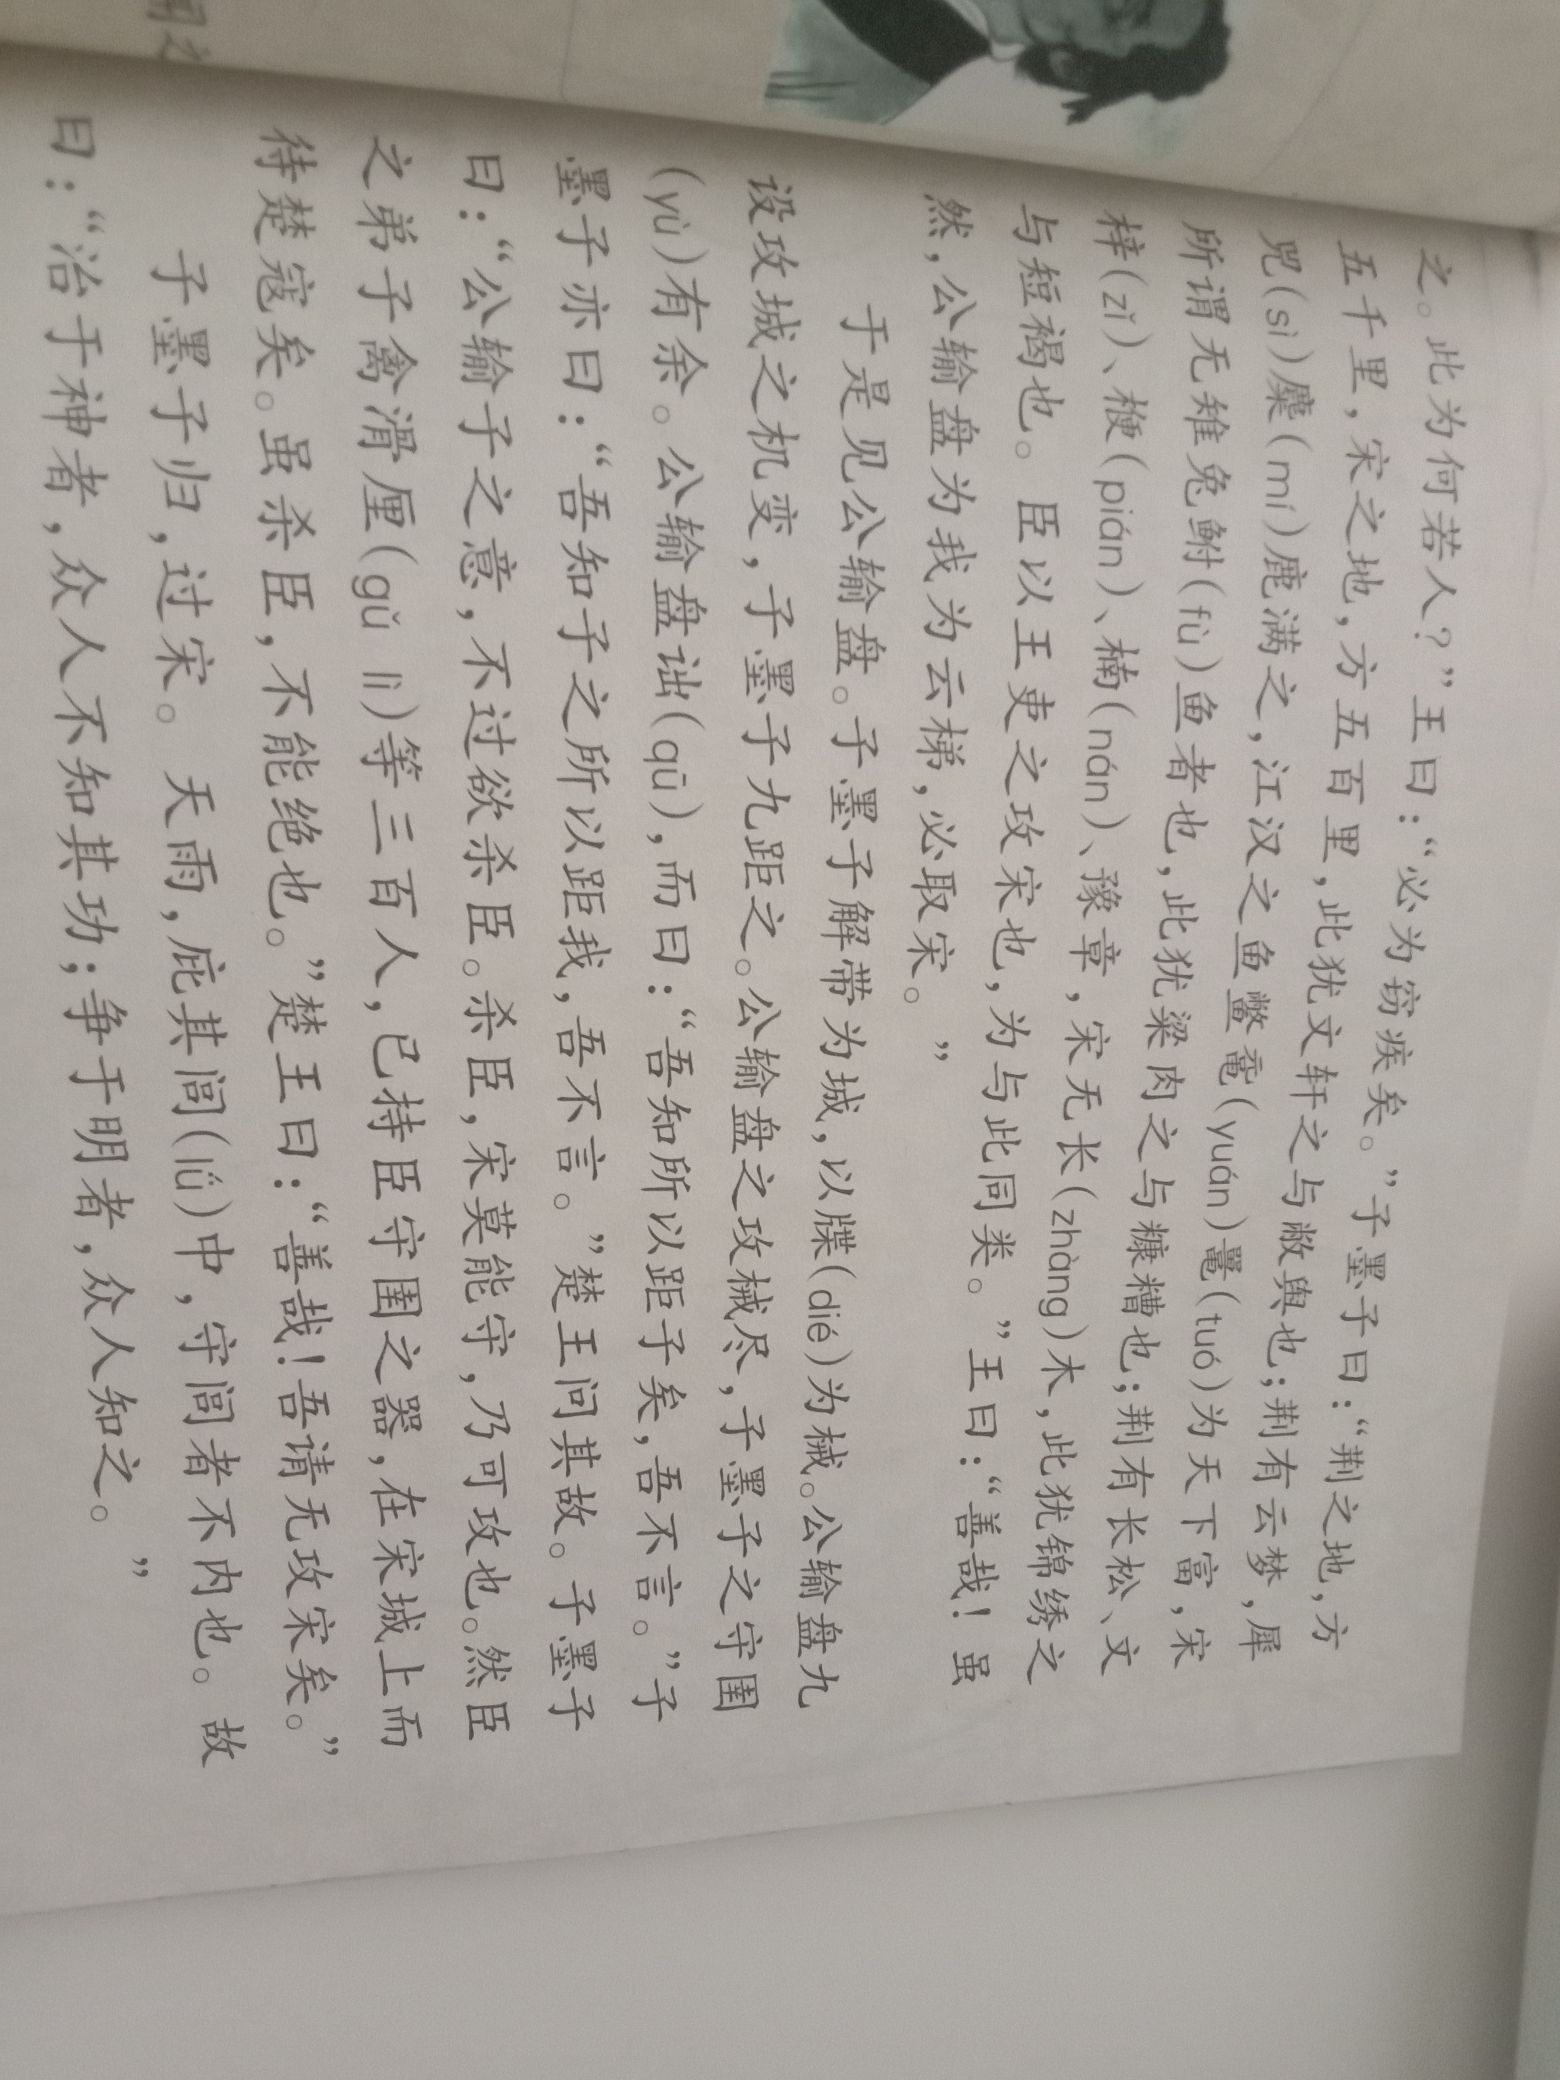 之。此为何若人？”王曰：“必为窃疾矣。”子墨子曰：“荆之地，方
五千里，宋之地，方五百里，此犹文轩之与敝舆也；荆有云梦，犀
兕(sì)麋(mí)鹿满之，江汉之鱼鳖鼋(yuán)鼍(tuó)为天下富，宋
所谓无雉兔鲋(fù)鱼者也，此犹粱肉之与糠糟也；荆有长松、文
梓(zǐ)、楩(pián)、楠(nán)、豫章，宋无长(zhàng)木，此犹锦绣之
与短褐也。臣以王吏之攻宋也，为与此同类。”王曰：“善哉！虽
然，公输盘为我为云梯，必取宋。”
于是见公输盘。子墨子解带为城，以牒(dié)为械。公输盘九
设攻城之机变，子墨子九距之。公输盘之攻械尽，子墨子之守圉
(yù)有余。公输盘诎(qū)，而曰：“吾知所以距子矣，吾不言。”子
墨子亦曰：“吾知子之所以距我，吾不言。”楚王问其故。子墨子
曰：“公输子之意，不过欲杀臣。杀臣，宋莫能守，乃可攻也。然臣
之弟子禽滑厘(gǔ lí)等三百人，已持臣守圉之器，在宋城上而
待楚寇矣。虽杀臣，不能绝也。”楚王曰：“善哉！吾请无攻宋矣。”
子墨子归，过宋。天雨，庇其闾(lǘ)中，守闾者不内也。故
曰：“治于神者，众人不知其功；争于明者，众人知之。”